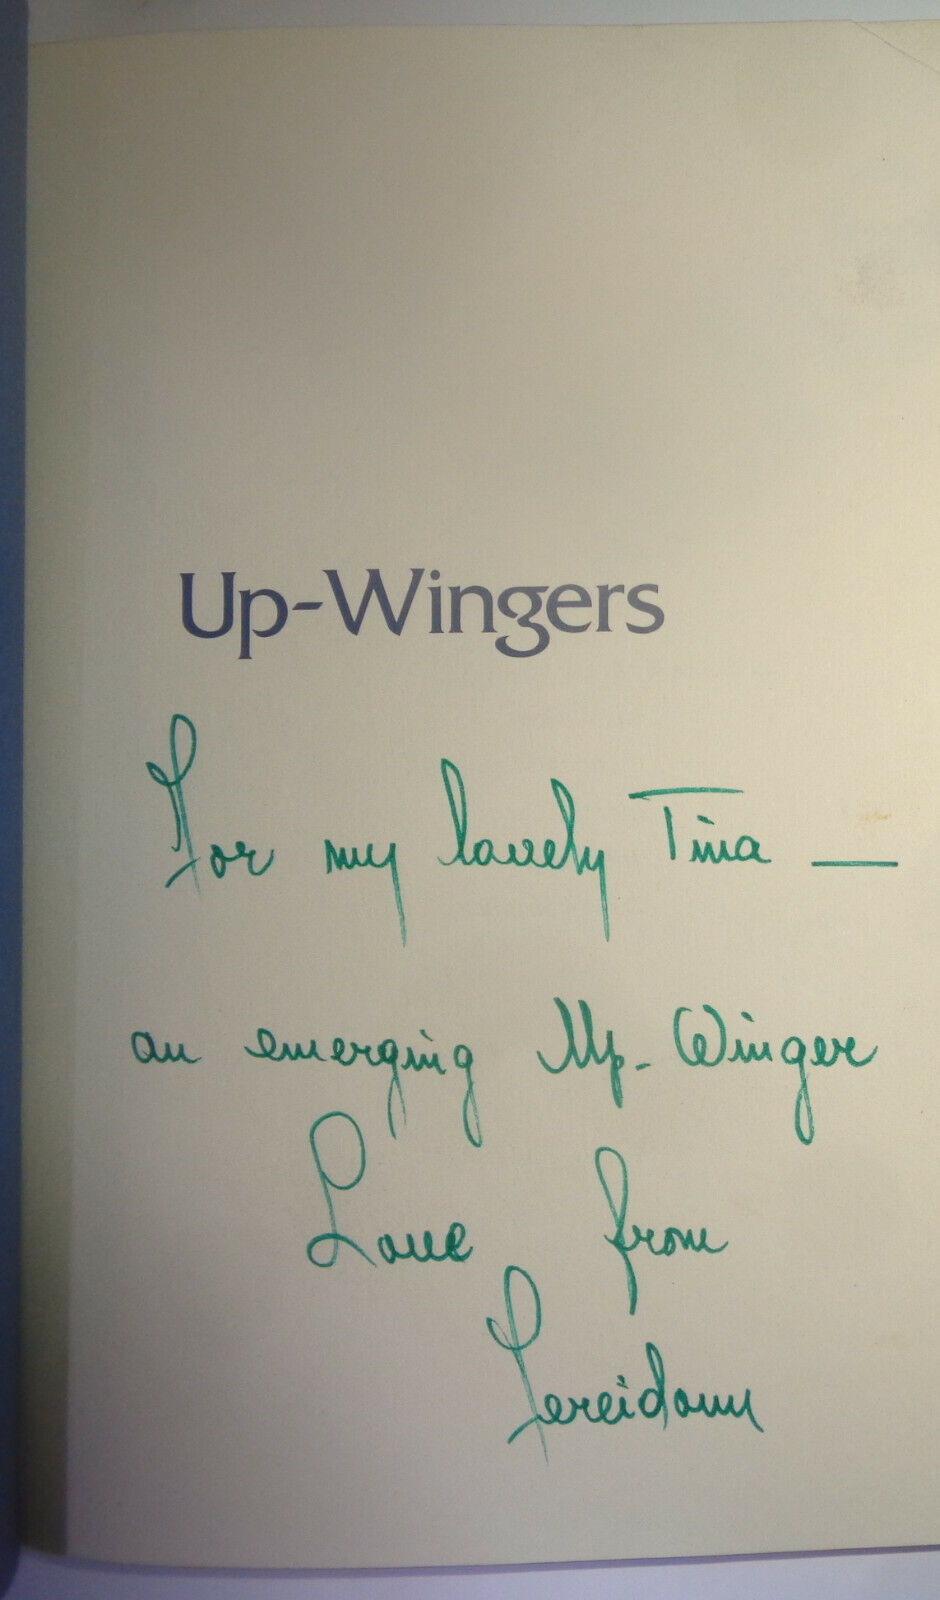 Up-Wingers
For my lovely Tina —
an emerging Up-Winger
Love from
Fereidoun